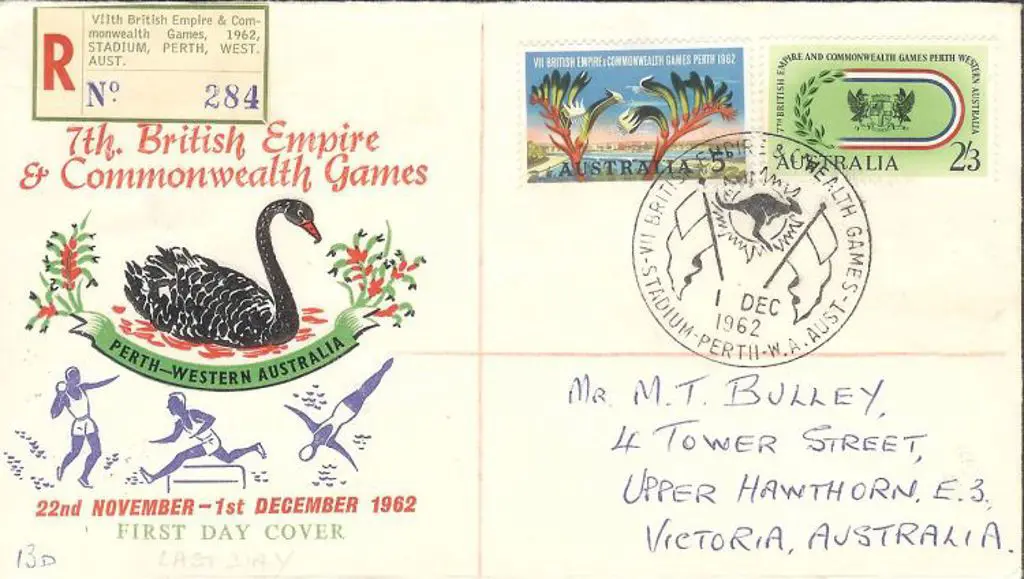 R
VIIth British Empire & Com-
monwealth Games, 1962,
STADIUM, PERTH, WEST.
AUST.
Nº 284
7th. British Empire
& Commonwealth Games
PERTH—WESTERN AUSTRALIA
22nd NOVEMBER — 1st DECEMBER 1962
FIRST DAY COVER
LAST DAY
13D
VII BRITISH EMPIRE & COMMONWEALTH GAMES PERTH 1962
AUSTRALIA 5D
7TH BRITISH EMPIRE AND COMMONWEALTH GAMES PERTH WESTERN AUSTRALIA
AUSTRALIA 2/3
VII BRITISH EMPIRE & C'WEALTH GAMES-
STADIUM-PERTH-W.A. AUST-
1 DEC
1962
MR. M.T. BULLEY,
4 TOWER STREET,
UPPER HAWTHORN. E.3,
VICTORIA, AUSTRALIA.